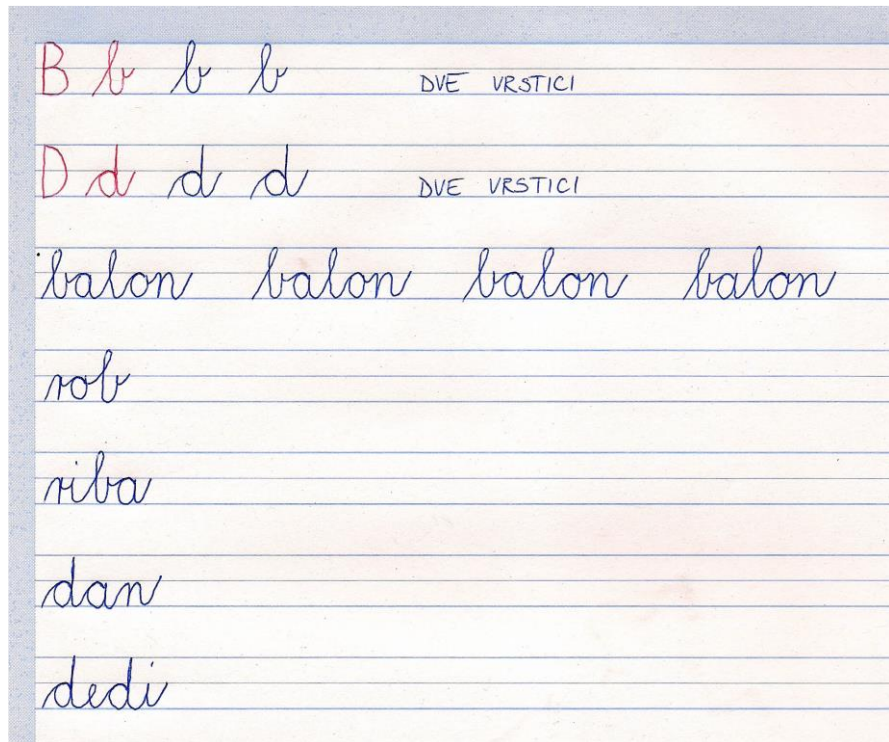 B b b b DVE VRSTICI
D d d d DVE VRSTICI
balon balon balon balon
rob
riba
dan
dedi